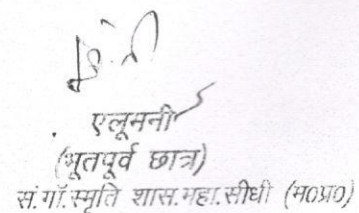 एलूमनी
(भूतपूर्व छात्र)
सं.गॉ.स्मृति शास.महा.सीधी (म०प्र०)